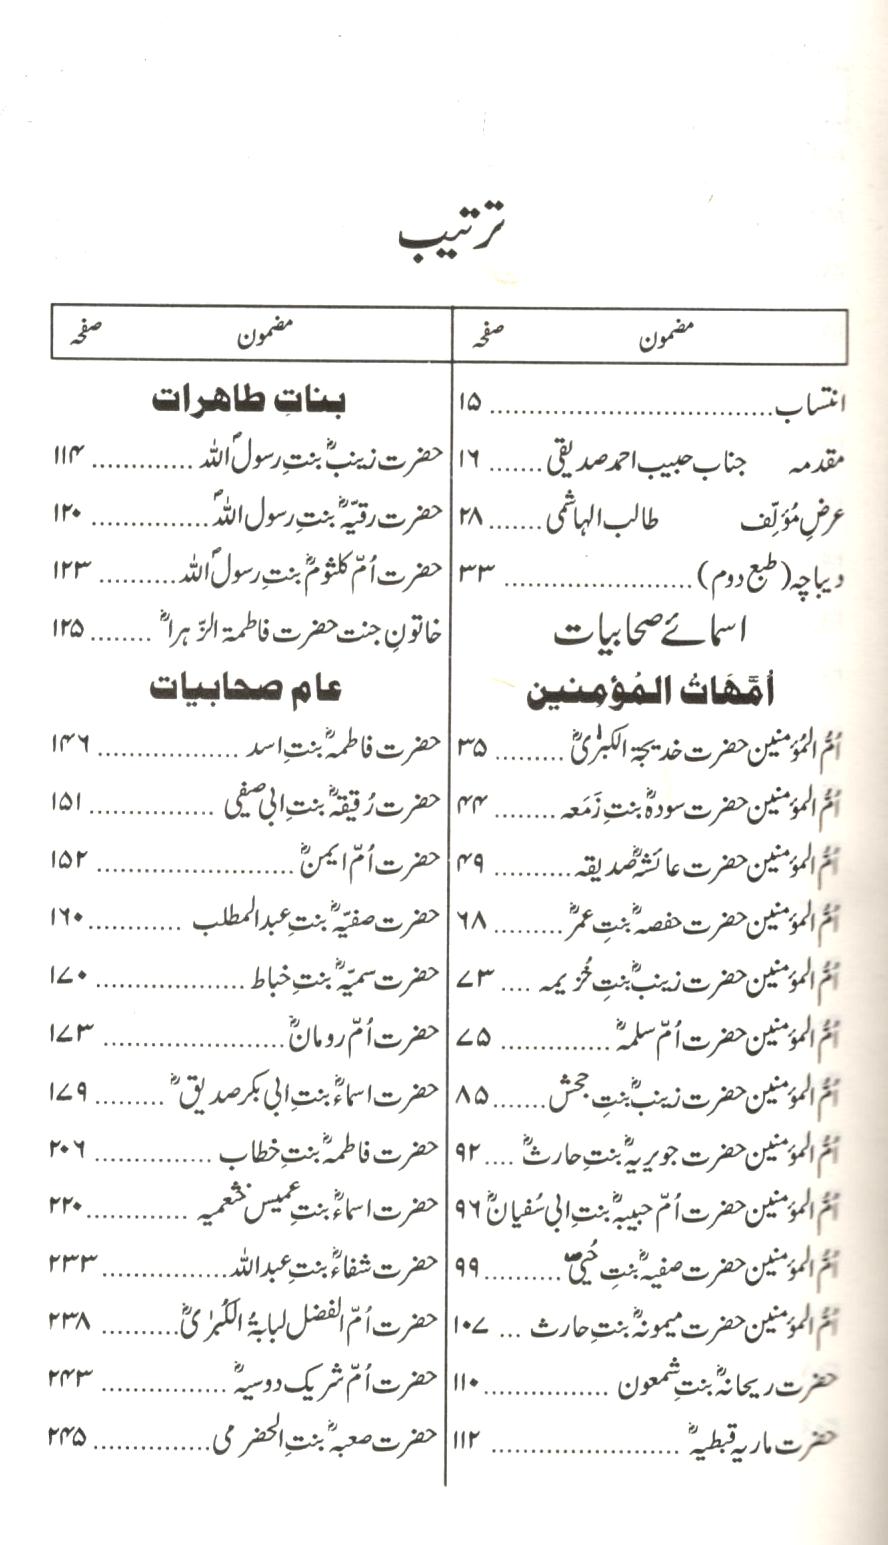 ترتیب
مضمون صفحہ
انتساب.................................. ۱۵
مقدمہ جناب حبیب احمد صدیقی....... ۱۶
عرضِ مُؤلِّف طالب الہاشمی....... ۲۸
دیباچہ (طبع دوم)....................... ۳۳
اسمائے صحابیات
اُمَّھَاتُ المُؤمِنین
اُمُّ المُؤمنین حضرت خدیجۃ الکبرٰیؓ......... ۳۵
اُمُّ المؤمنین حضرت سودہؓ بنتِ زَمَعہ......... ۴۴
اُمُّ المؤمنین حضرت عائشہؓ صدیقہ.......... ۴۹
اُمُّ المؤمنین حضرت حفصہؓ بنتِ عمرؓ......... ۶۸
اُمُّ المؤمنین حضرت زینبؓ بنتِ خُزیمہ .... ۷۳
اُمُّ المؤمنین حضرت اُمِّ سلمہؓ .............. ۷۵
اُمُّ المؤمنین حضرت زینبؓ بنتِ جحش....... ۸۵
اُمُّ المؤمنین حضرت جویریہؓ بنتِ حارثؓ .... ۹۲
اُمُّ المؤمنین حضرت اُمِّ حبیبہؓ بنتِ ابی سُفیانؓ ۹۶
اُمُّ المؤمنین حضرت صفیہؓ بنتِ حُیَیّ.......... ۹۹
اُمُّ المؤمنین حضرت میمونہؓ بنتِ حارث ... ۱۰۷
حضرت ریحانہؓ بنتِ شمعون ............... ۱۱۰
حضرت ماریہ قبطیہؓ ....................... ۱۱۲
مضمون صفحہ
بناتِ طاھرات
حضرت زینبؓ بنتِ رسولؐ اللہ ............. ۱۱۴
حضرت رقیّہؓ بنتِ رسول اللہؐ............... ۱۲۰
حضرت اُمِّ کلثومؓ بنتِ رسولؐ اللہ.......... ۱۲۳
خاتونِ جنت حضرت فاطمۃ الزّہراؓ ........ ۱۲۵
عام صحابیات
حضرت فاطمہؓ بنتِ اسد ................. ۱۴۶
حضرت رُقیقہؓ بنتِ ابی صیفی ............... ۱۵۱
حضرت اُمِّ ایمنؓ ........................ ۱۵۲
حضرت صفیّہؓ بنتِ عبدالمطلب ........... ۱۶۰
حضرت سمیّہؓ بنتِ خباط .................. ۱۷۰
حضرت اُمِّ رومانؓ...................... ۱۷۳
حضرت اسماءؓ بنتِ ابی بکر صدیقؓ ......... ۱۷۹
حضرت فاطمہؓ بنتِ خطاب .............. ۲۰۶
حضرت اسماءؓ بنتِ عمیس خثعمیہ ............ ۲۲۰
حضرت شفاءؓ بنتِ عبداللہ............... ۲۳۳
حضرت اُمِّ الفضل لبابۃُ الکُبریٰؓ.......... ۲۳۸
حضرت اُمِّ شریک دوسیہؓ ............... ۲۴۳
حضرت صعبہؓ بنتِ الحضرمی.............. ۲۴۵